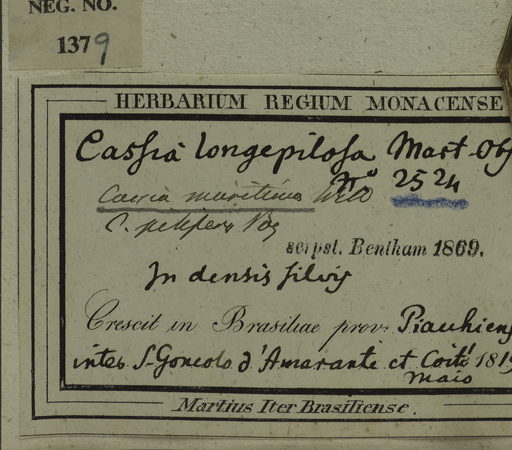 NEG. NO.
1379
HERBARIUM REGIUM MONACENSE
Cassia longepilosa Mart. Obs
No 2524
Cassia
C.
scrpst. Bentham 1869.
In densis silvis
Crescit in Brasiliae prov. Piauhiens
inter S. Goncolo d'Amarante et 1819
Maio
Martius Iter Brasiliense.